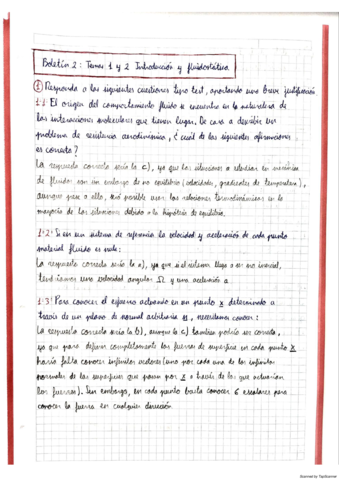 Boletín 2: Temas 1 y 2 Introducción y fluidostática
① Responda a las siguientes cuestiones tipo test, aportando una breve justificación
1.1 El origen del comportamiento fluido se encuentra en la naturaleza de
las interacciones moleculares que tienen lugar. De cara a describir un
problema de resistencia aerodinámica, ¿cuál de las siguientes afirmaciones
es correcta?
La respuesta correcta sería la c), ya que las situaciones a estudiar en mecánica
de fluidos son sin embargo de no equilibrio (velocidades, gradientes de temperatura),
aunque pese a ello, será posible usar las relaciones termodinámicas en la
mayoría de las situaciones debido a la hipótesis de equilibrio.
1.2 Si en un sistema de referencia la velocidad y aceleración de cada punto
material fluido es nula:
La respuesta correcta sería la a), ya que si el sistema llega a ser no inercial,
tendríamos una velocidad angular Ω y una aceleración a
1.3 Para conocer el esfuerzo actuando en un punto x determinado a
través de un plano de normal arbitraria n, necesitamos conocer:
La respuesta correcta sería la b), aunque la c) también podría ser correcta,
ya que para definir completamente las fuerzas de superficie en cada punto x
haría falta conocer infinitos vectores (uno por cada una de las infinitas
normales de las superficies que pasan por x a través de las que actuarían
las fuerzas). Sin embargo, en cada punto basta conocer 6 escalares para
conocer la fuerza en cualquier dirección.
Scanned by TapScanner